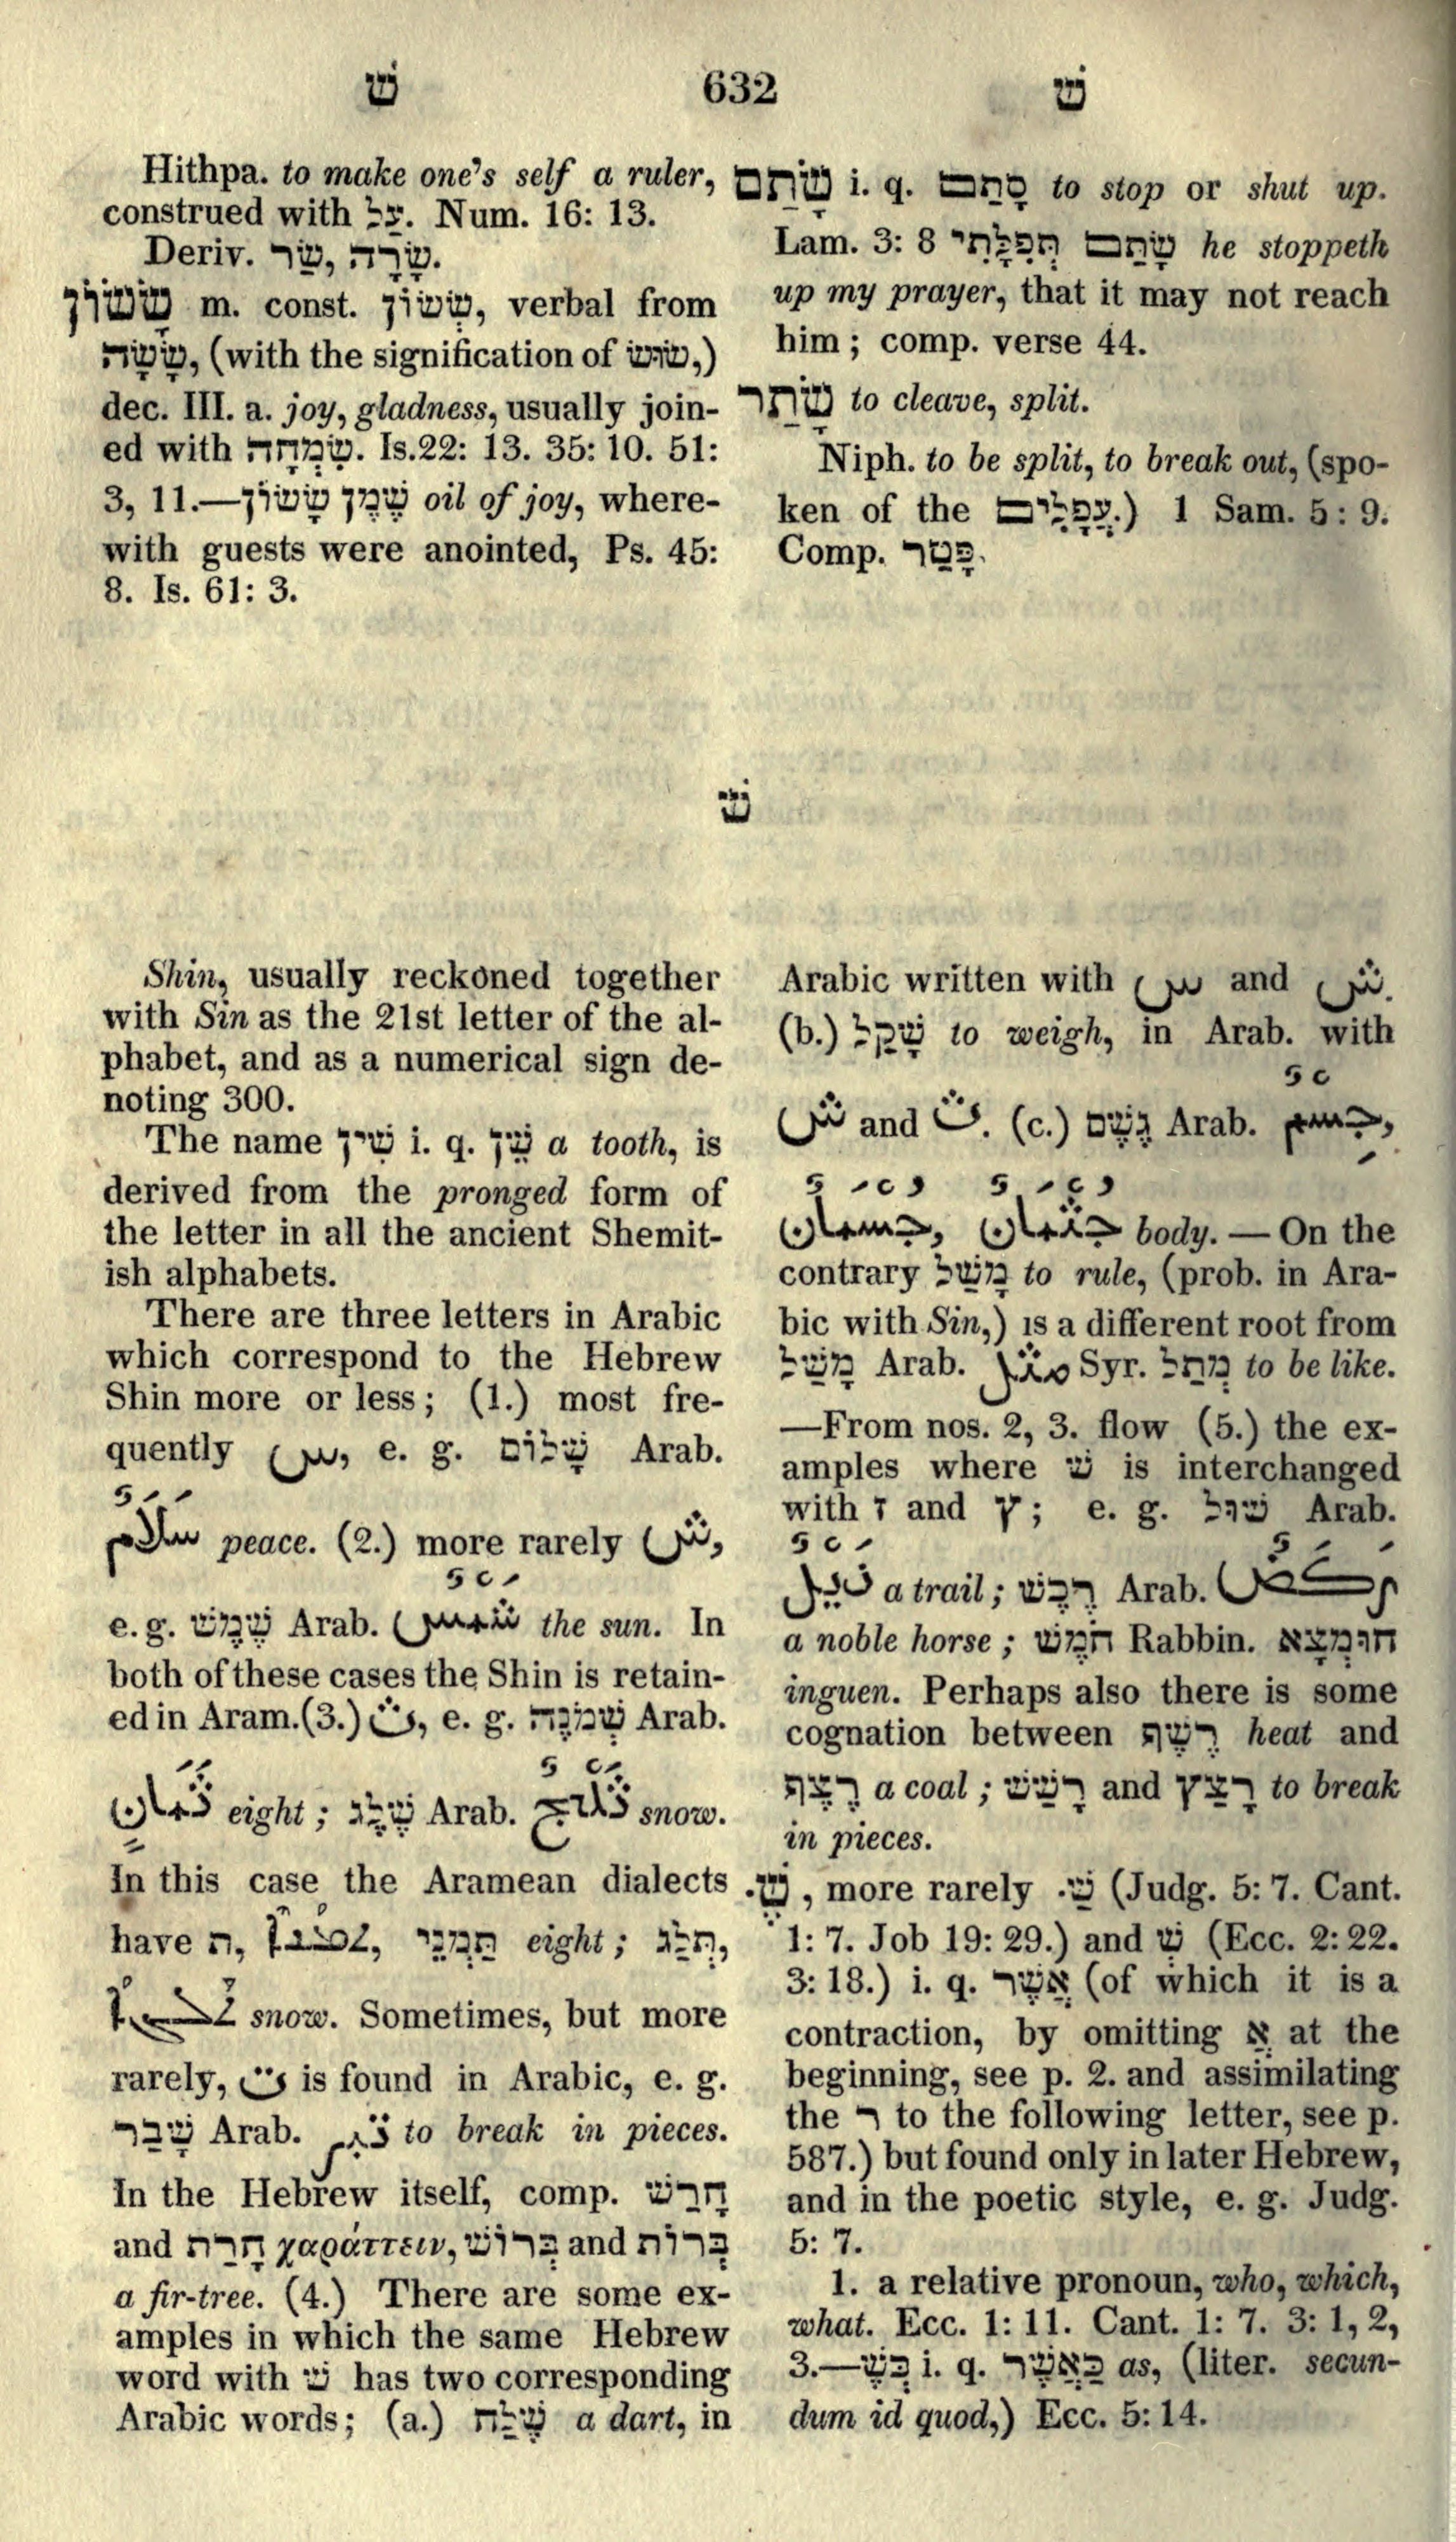 שׁ 632 שׁ
Hithpa. to make one's self a ruler,
construed with עַל. Num. 16: 13.
Deriv. שַׂר, שָׂרָה.
שָׂשׂוֹן m. const. שְׂשׂוֹן, verbal from
שָׂשָׂה, (with the signification of שׂוּשׂ,)
dec. III. a. joy, gladness, usually join-
ed with שִׂמְחָה. Is.22: 13. 35: 10. 51:
3, 11.—שֶׁמֶן שָׂשׂוֹן oil of joy, where-
with guests were anointed, Ps. 45:
8. Is. 61: 3.
שָׂתַם i. q. סָתַם to stop or shut up.
Lam. 3: 8 שָׂתַם תְּפִלָּתִי he stoppeth
up my prayer, that it may not reach
him; comp. verse 44.
שָׂתַר to cleave, split.
Niph. to be split, to break out, (spo-
ken of the עֳפָלִים.) 1 Sam. 5: 9.
Comp. פָּטַר.
שׁ
Shin, usually reckoned together
with Sin as the 21st letter of the al-
phabet, and as a numerical sign de-
noting 300.
The name שִׁין i. q. שֵׁן a tooth, is
derived from the pronged form of
the letter in all the ancient Shemit-
ish alphabets.
There are three letters in Arabic
which correspond to the Hebrew
Shin more or less; (1.) most fre-
quently س, e. g. שָׁלוֹם Arab.
سَلَامٌ peace. (2.) more rarely ش,
e. g. שֶׁמֶשׁ Arab. شَمْسٌ the sun. In
both of these cases the Shin is retain-
ed in Aram.(3.) ث, e. g. שְׁמֹנֶה Arab.
ثَمَانٍ eight; שֶׁלֶג Arab. ثَلْجٌ snow.
In this case the Aramean dialects
have ת, ܬܡܢܝܐ, תְּמָנֵי eight; תְּלַג,
ܬܠܓܐ snow. Sometimes, but more
rarely, ت is found in Arabic, e. g.
שָׁבַר Arab. تبر to break in pieces.
In the Hebrew itself, comp. חָרַשׁ
and חָרַת χαράττειν, בְּרוֹשׁ and בְּרוֹת
a fir-tree. (4.) There are some ex-
amples in which the same Hebrew
word with שׁ has two corresponding
Arabic words; (a.) שֶׁלַח a dart, in
Arabic written with س and ش.
(b.) שָׁקַל to weigh, in Arab. with
ش and ث. (c.) גֶּשֶׁם Arab. جِسْمٌ,
جُسْمَانٌ, جُثْمَانٌ body. — On the
contrary מָשַׁל to rule, (prob. in Ara-
bic with Sin,) is a different root from
מָשַׁל Arab. مثل Syr. מְתַל to be like.
—From nos. 2, 3. flow (5.) the ex-
amples where שׁ is interchanged
with ז and ץ; e. g. שׁוּל Arab.
ذَيْلٌ a trail; רֶכֶשׁ Arab. رَكَضٌ
a noble horse; חֹמֶשׁ Rabbin. חוּמְצָא
inguen. Perhaps also there is some
cognation between רֶשֶׁף heat and
רֶצֶף a coal; רָשַׁשׁ and רָצַץ to break
in pieces.
שֶׁ·, more rarely שַׁ· (Judg. 5: 7. Cant.
1: 7. Job 19: 29.) and שְׁ (Ecc. 2: 22.
3: 18.) i. q. אֲשֶׁר (of which it is a
contraction, by omitting אֲ at the
beginning, see p. 2. and assimilating
the ר to the following letter, see p.
587.) but found only in later Hebrew,
and in the poetic style, e. g. Judg.
5: 7.
1. a relative pronoun, who, which,
what. Ecc. 1: 11. Cant. 1: 7. 3: 1, 2,
3.—כְּשֶׁ i. q. כַּאֲשֶׁר as, (liter. secun-
dum id quod,) Ecc. 5: 14.